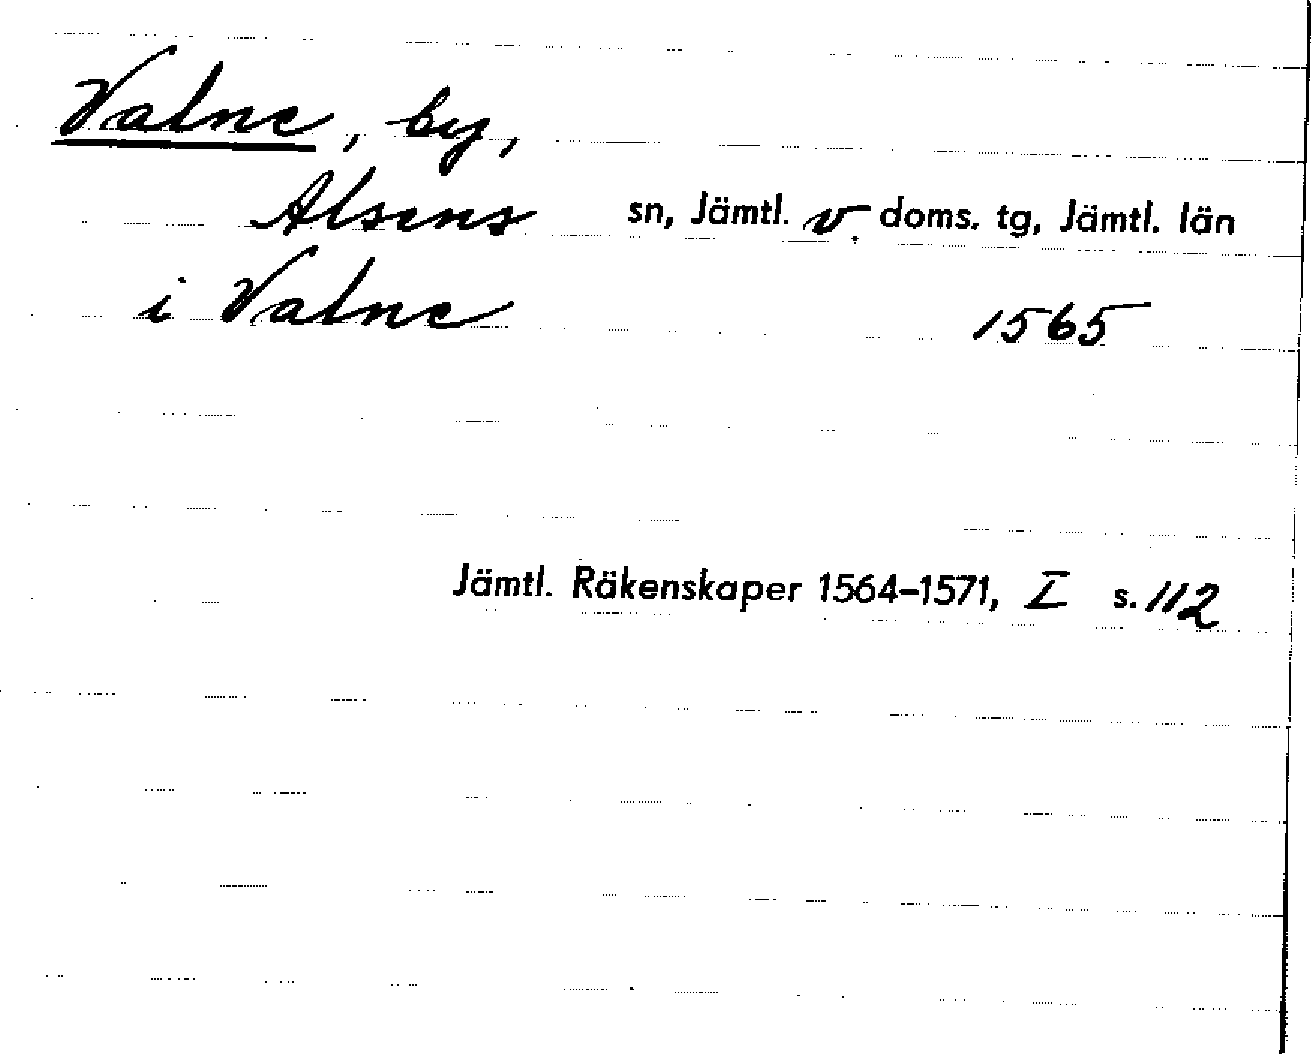 Valne, by,
Alsens sn, Jämtl. v. doms. tg, Jämtl. län
i Valne 1565
Jämtl. Räkenskaper 1564–1571, I s. 112